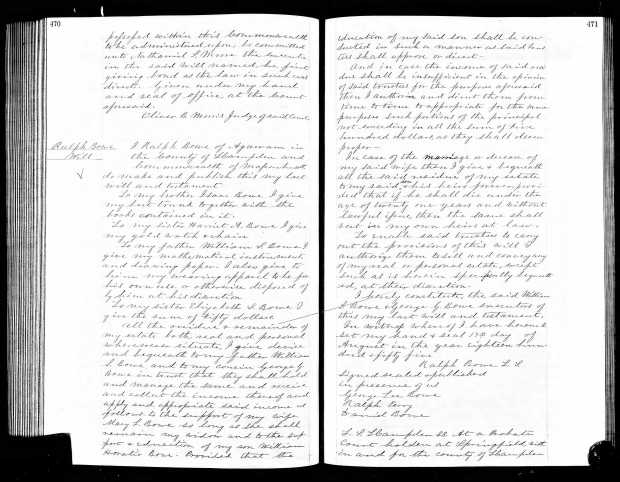 470
possessed within this Commonwealth
to be administered upon, be committed
unto Nathaniel S. the executor
in the said will named, he first
giving bond as the law in such case
directs. Given under my hand
and seal of office at the Court
aforesaid.
Oliver B. Morris Judge of said Court.
Ralph Bowe
Will
I Ralph Bowe of Agawam in
the County of Hampden and
Commonwealth of Massachusetts
do make and publish this my last
will and testament.
To my brother Isaac Bowe I give
my together with the
books contained in it.
To my sister Harriet A. Bowe I give
my gold watch & chain
To my father William S. Bowe I
give my mathematical instruments
and I also give to
him my wearing apparel to be for
his own use, or otherwise disposed of
by him at his discretion
To my sister I. Bowe I
give the sum of fifty dollars
All the residue & remainder of
my estate both real and personal
wheresoever situate, I give devise
and bequeath to my father William
S. Bowe and to my cousin George G.
Bowe in trust that they shall hold
and manage the same and receive
and collect the income thereof and
apply and appropriate said income as
follows to the support of my wife
Mary L. Bowe so long as she shall
remain my widow and to the sup
port & education of my son William
Horatio Bowe. Provided that the
471
education of my said son shall be con
ducted in such a manner as said trus
tees shall approve or direct.
And in case the income of said resi
due shall be insufficient in the opinion
of said trustees for the purpose aforesaid
then I authorize and direct them from
time to time to appropriate for the same
purpose such portions of the principal
not exceeding in all the sum of five
hundred dollars as they shall deem
proper.
In case of the marriage or decease of
my said wife then I give & bequeath
all the said residue of my estate
to my said son & his heirs forever, provi
ded that if he shall die under the
age of twenty one years and without
lawful issue, then the same shall
vest in my own heirs at law.
To enable said trustees to carry
out the provisions of this will I
authorize them to sell and convey any
of my real or personal estate, except
such as is herein specifically bequeath
ed, at their discretion.
I hereby constitute the said William
S. Bowe & George G. Bowe executors of
this my last will and testament.
In witness whereof I have hereunto
set my hand & seal this day of
August in the year eighteen hun
dred & fifty five
Ralph Bowe L.S
Signed sealed & published
in presence of us
George Bowe
Ralph
Bowe
L.S. Hampden ss. At a Probate
Court holden at Springfield, with
in and for the county of Hampden